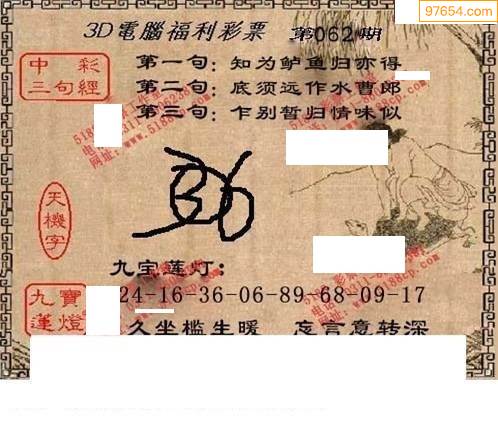 97654.com
3D電腦福利彩票 第062期
中彩
三句經
第一句：知为鲈鱼归亦得
第二句：底须远作水曹郎
第三句：乍别暂归情味似
天機字
九宝莲灯：
九寶
蓮燈
24-16-36-06-89-68-09-17
久坐槛生暖 忘言意转深